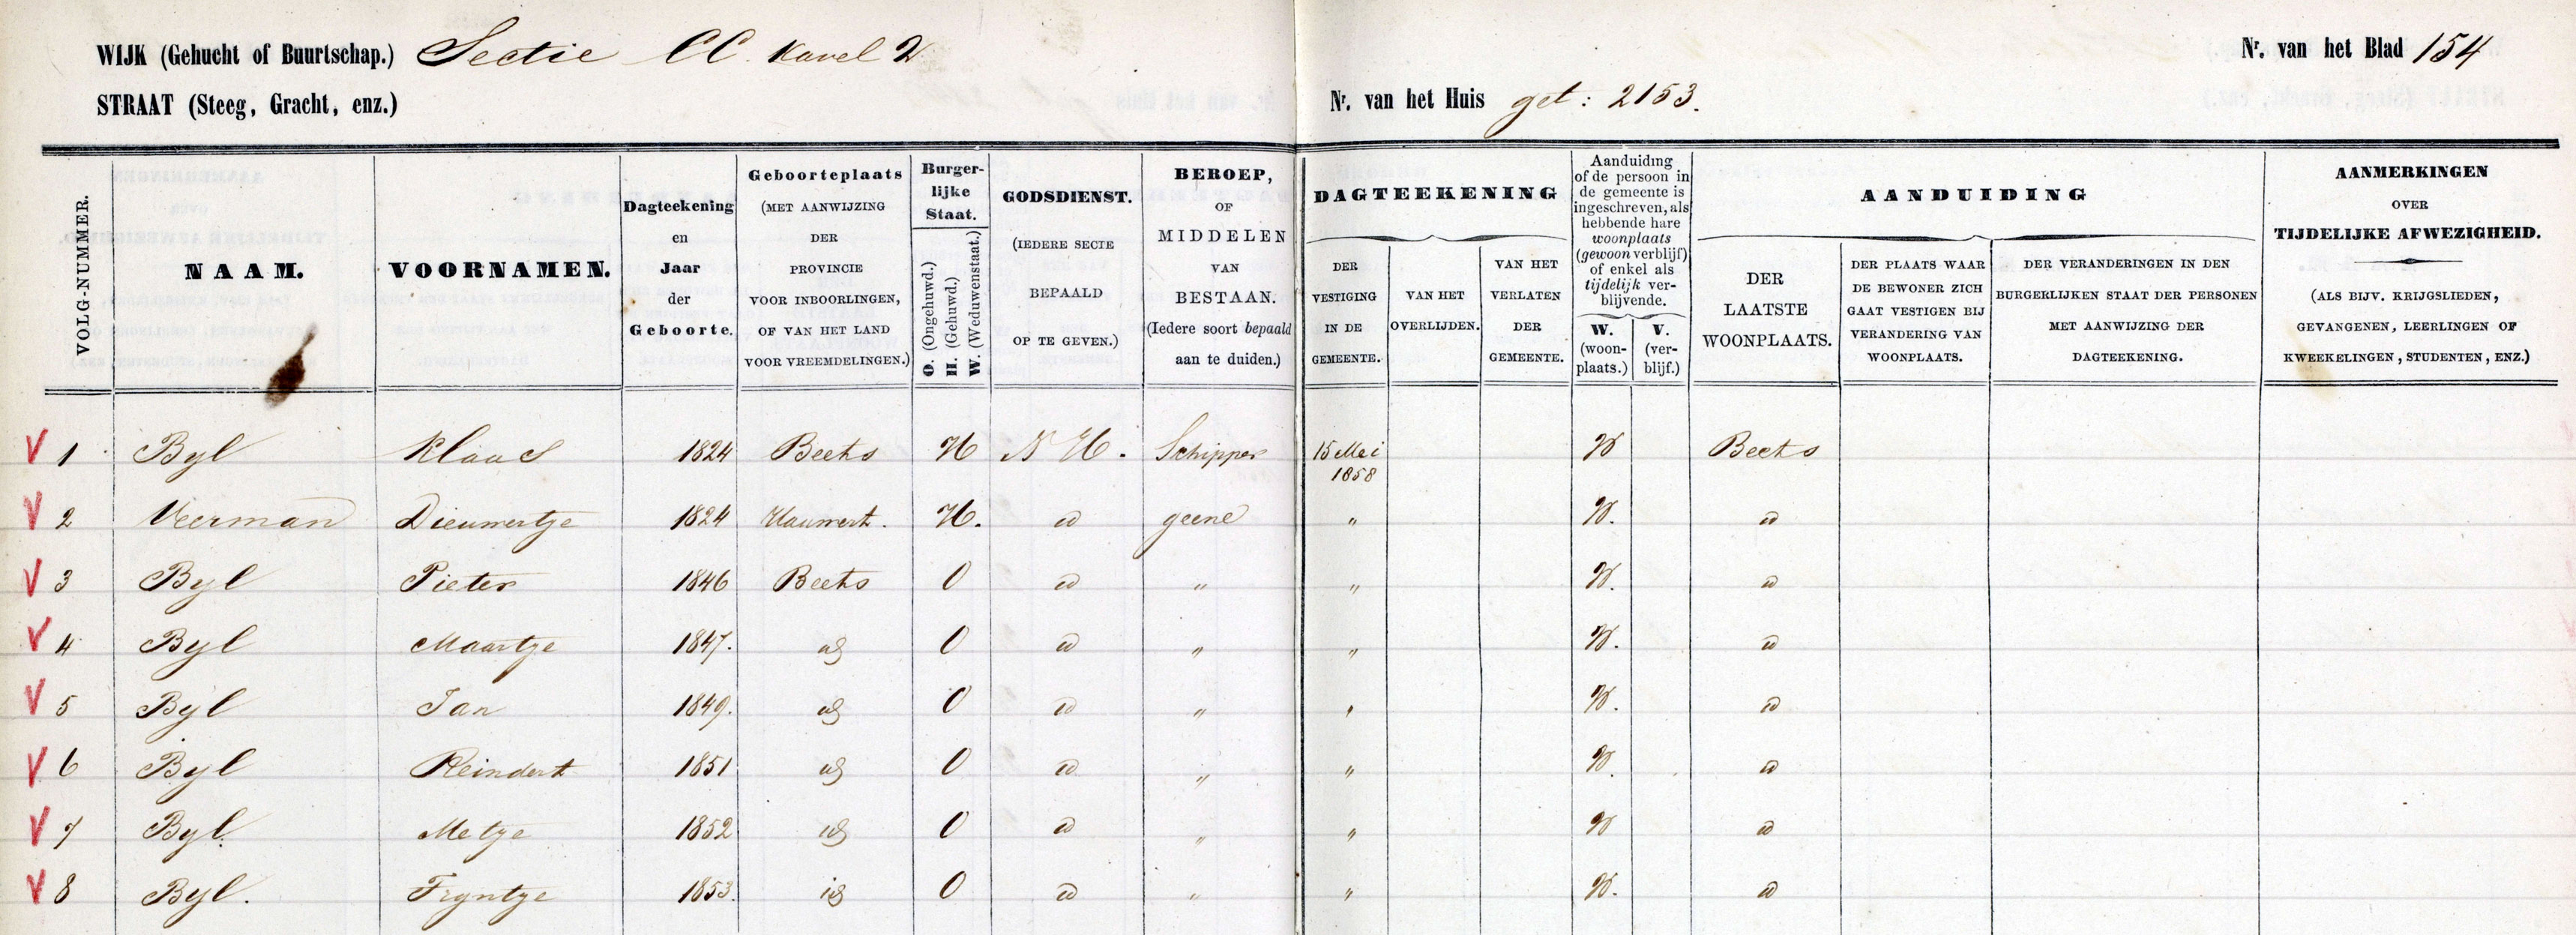 WIJK (Gehucht of Buurtschap.) Sectie CC. Kavel 2
Nr. van het Blad 154
STRAAT (Steeg, Gracht, enz.)
Nr. van het Huis get: 2153.
VOLG-NUMMER.
NAAM.
VOORNAMEN.
Dagteekening
en
Jaar
der
Geboorte.
Geboorteplaats
(MET AANWIJZING
DER
PROVINCIE
VOOR INBOORLINGEN,
OF VAN HET LAND
VOOR VREEMDELINGEN.)
Burger-
lijke
Staat.
O. (Ongehuwd.)
H. (Gehuwd.)
W. (Weduwenstaat.)
GODSDIENST.
(IEDERE SECTE
BEPAALD
OP TE GEVEN.)
BEROEP,
OF
MIDDELEN
VAN
BESTAAN.
(Iedere soort bepaald
aan te duiden.)
DAGTEEKENING
DER
VESTIGING
IN DE
GEMEENTE.
VAN HET
OVERLIJDEN.
VAN HET
VERLATEN
DER
GEMEENTE.
Aanduiding
of de persoon in
de gemeente is
ingeschreven, als
hebbende hare
woonplaats
(gewoon verblijf)
of enkel als
tijdelijk ver-
blijvende.
W.
(woon-
plaats.)
V.
(ver-
blijf.)
AANDUIDING
DER
LAATSTE
WOONPLAATS.
DER PLAATS WAAR
DE BEWONER ZICH
GAAT VESTIGEN BIJ
VERANDERING VAN
WOONPLAATS.
DER VERANDERINGEN IN DEN
BURGERLIJKEN STAAT DER PERSONEN
MET AANWIJZING DER
DAGTEEKENING.
AANMERKINGEN
OVER
TIJDELIJKE AFWEZIGHEID.
(ALS BIJV. KRIJGSLIEDEN,
GEVANGENEN, LEERLINGEN OF
KWEEKELINGEN, STUDENTEN, ENZ.)
V 1 Byl Klaas 1824 Beets H N H. Schipper 15 Mei 1858 W Beets
V 2 Veerman Dieuwertje 1824 H. id geene " W. id
V 3 Byl Pieter 1846 Beets O id " " W. id
V 4 Byl Maartje 1847. id O id " " W. id
V 5 Byl Jan 1849. id O id " " W. id
V 6 Byl Reindert 1851 id O id " " W. id
V 7 Byl. Metje 1852 id O id " " W id
V 8 Byl. Tryntje 1853. id O id " " W. id